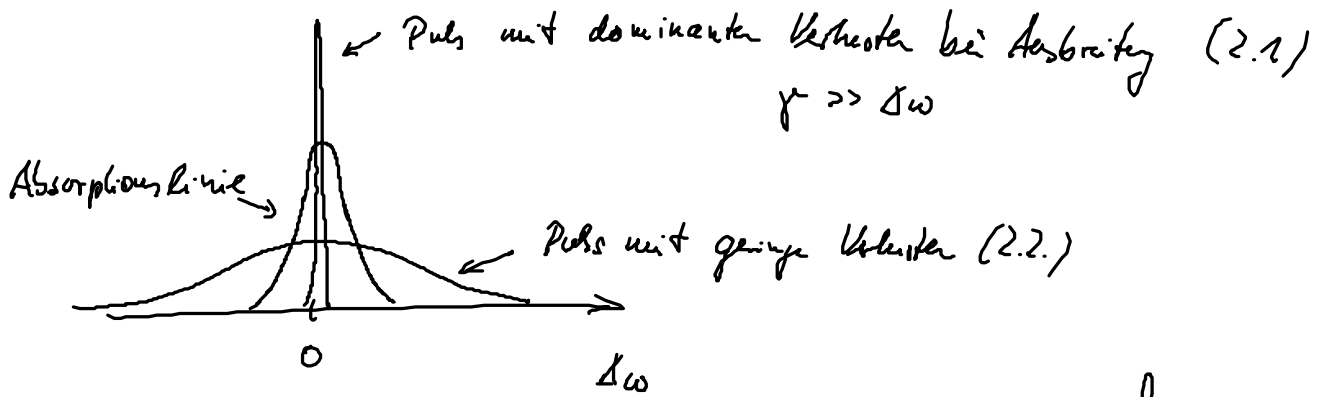 Puls mit dominanten Verlusten bei Ausbreitung (2.1)
γ >> Δω
Absorptionslinie
Puls mit geringen Verlusten (2.2.)
0
Δω